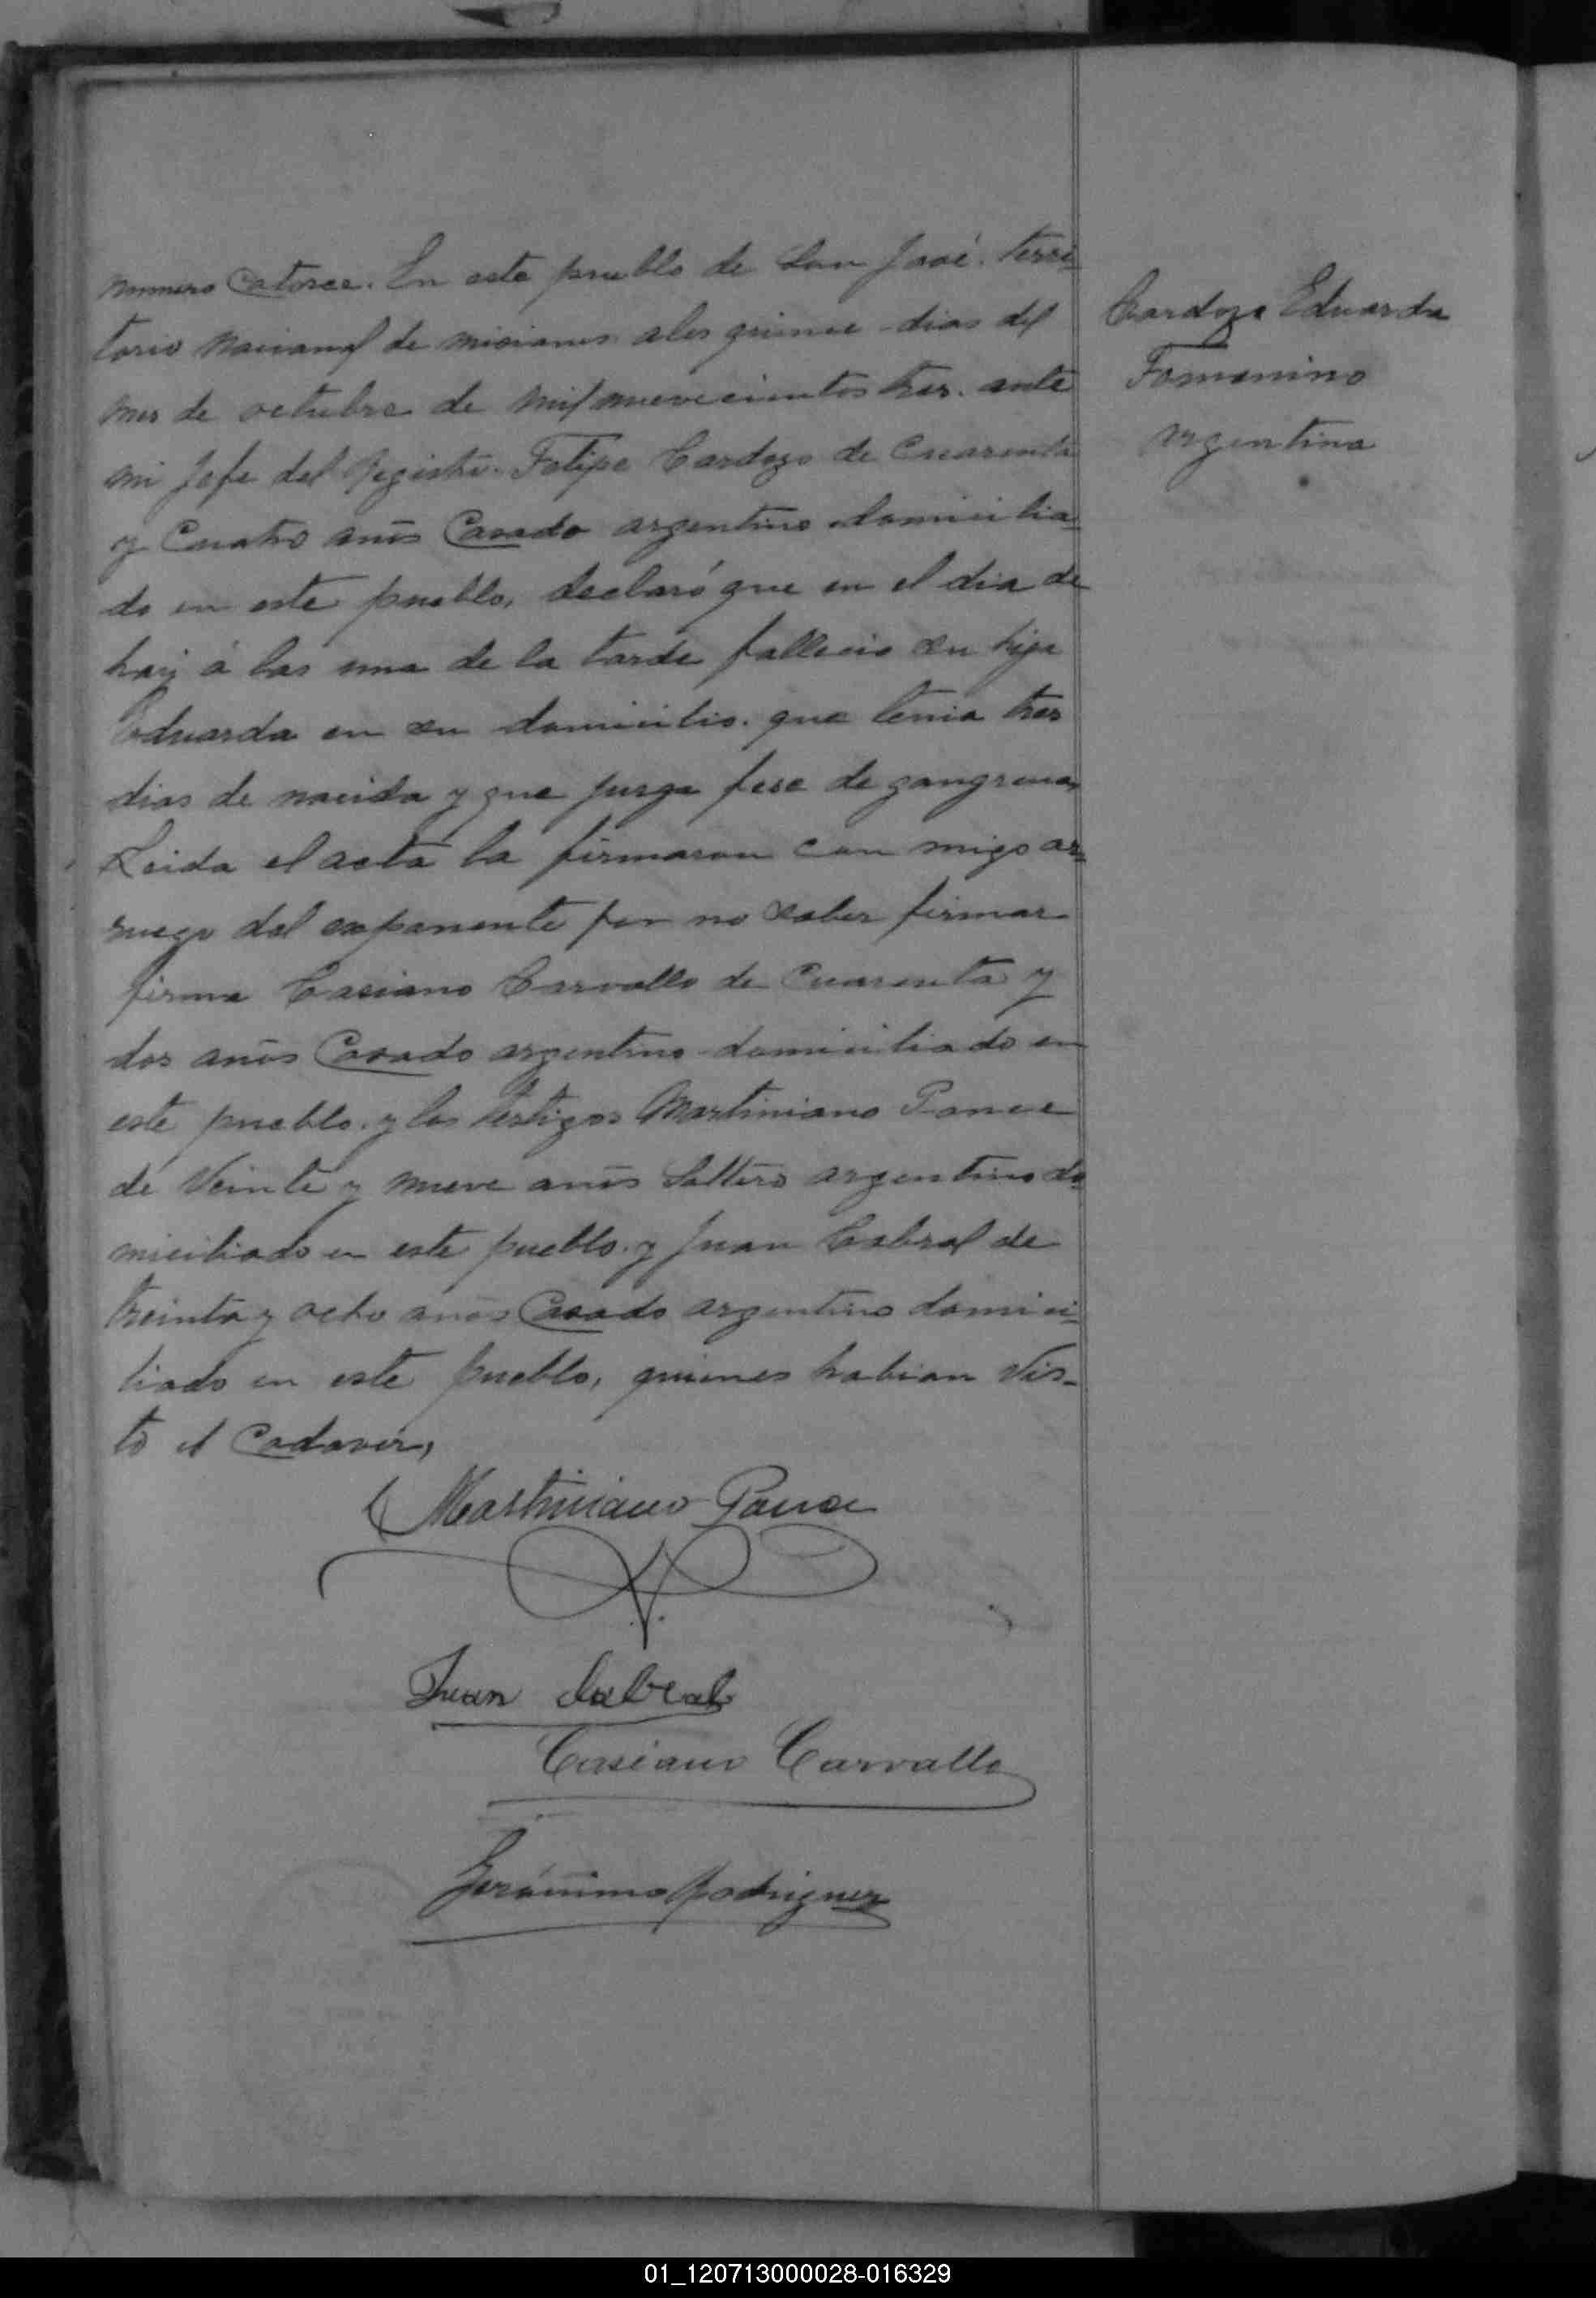 numero Catorce. En este pueblo de San José. terri-
torio nacional de misiones a los quince dias del
mes de octubre de mil nuevecientos tres. ante
mi Jefe del Registro. Felipe Cardozo de Cuarenta
y Cuatro años Casado argentino domicilia-
do en este pueblo, declaró que en el dia de
hoy á las una de la tarde fallecio su hija
Eduarda en su domicilio. que tenia tres
dias de nacida y que juzga fuse de gangrena,
Leida el acta la firmaron con migo a
ruego del exponente por no saber firmar
firma Casiano Carvallo de Cuarenta y
dos años Casado argentino domiciliado en
este pueblo. y los testigos Martiniano Ponce
de Veinte y nueve años Soltero argentino do-
miciliado en este pueblo. y Juan Cabral de
treinta y ocho años Casado argentino domici-
liado en este pueblo, quienes habian Vis-
to el Cadaver,
Martiniano Ponce
Juan Cabral
Casiano Carvallo
Gerónimo Rodriguez
Cardozo Eduarda
Femenino
argentina
01_120713000028-016329